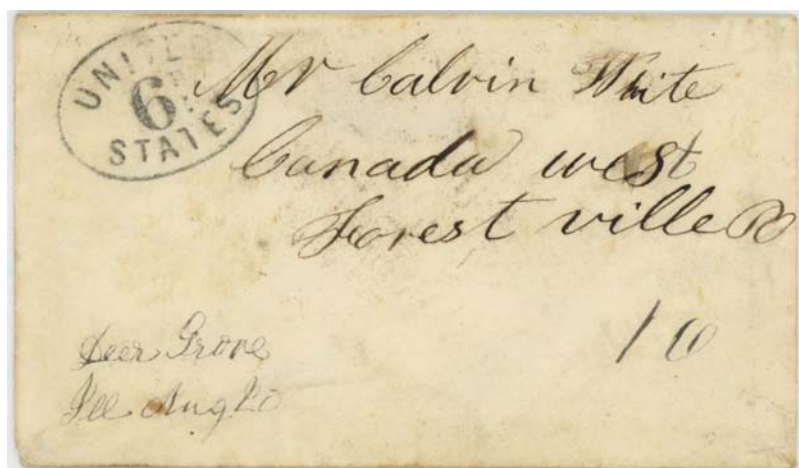 UNITED
6
STATES
Mr Calvin White
Canada west
Forest ville
10
Deer Grove
Ill Aug